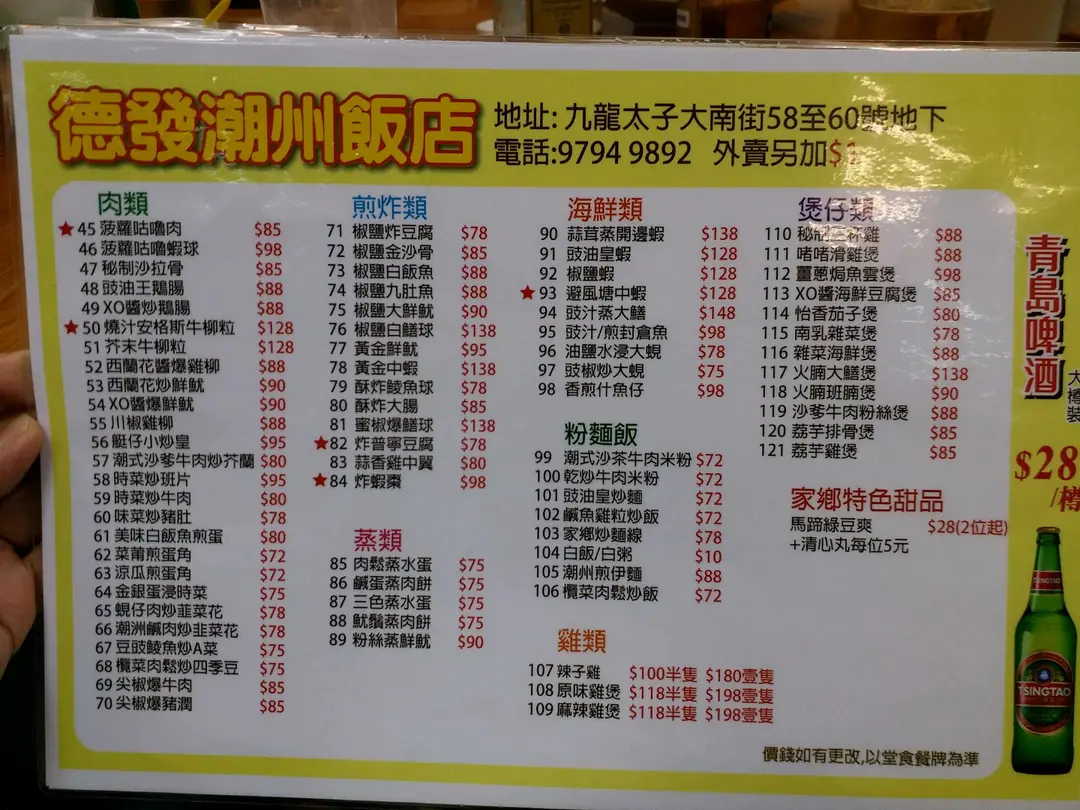 德發潮州飯店
地址: 九龍太子大南街58至60號地下
電話:9794 9892 外賣另加$1
肉類
★ 45 菠蘿咕嚕肉 $85
46 菠蘿咕嚕蝦球 $98
47 秘制沙拉骨 $85
48 豉油王鵝腸 $88
49 XO醬炒鵝腸 $88
★ 50 燒汁安格斯牛柳粒 $128
51 芥末牛柳粒 $128
52 西蘭花醬爆雞柳 $88
53 西蘭花炒鮮魷 $90
54 XO醬爆鮮魷 $90
55 川椒雞柳 $88
56 艇仔小炒皇 $95
57 潮式沙爹牛肉炒芥蘭 $80
58 時菜炒班片 $95
59 時菜炒牛肉 $80
60 味菜炒豬肚 $78
61 美味白飯魚煎蛋 $80
62 菜莆煎蛋角 $72
63 涼瓜煎蛋角 $72
64 金銀蛋浸時菜 $75
65 蜆仔肉炒韮菜花 $78
66 潮洲鹹肉炒韭菜花 $78
67 豆豉鯪魚炒A菜 $75
68 欖菜肉鬆炒四季豆 $75
69 尖椒爆牛肉 $85
70 尖椒爆豬潤 $85
煎炸類
71 椒鹽炸豆腐 $78
72 椒鹽金沙骨 $85
73 椒鹽白飯魚 $88
74 椒鹽九肚魚 $88
75 椒鹽大鮮魷 $90
76 椒鹽白鱔球 $138
77 黃金鮮魷 $95
78 黃金中蝦 $138
79 酥炸鯪魚球 $78
80 酥炸大腸 $85
81 蜜椒爆鱔球 $138
★ 82 炸普寧豆腐 $78
83 蒜香雞中翼 $80
★ 84 炸蝦棗 $98
蒸類
85 肉鬆蒸水蛋 $75
86 鹹蛋蒸肉餅 $75
87 三色蒸水蛋 $75
88 魷鬚蒸肉餅 $75
89 粉絲蒸鮮魷 $90
海鮮類
90 蒜茸蒸開邊蝦 $138
91 豉油皇蝦 $128
92 椒鹽蝦 $128
★ 93 避風塘中蝦 $128
94 豉汁蒸大鱔 $148
95 豉汁/煎封倉魚 $98
96 油鹽水浸大蜆 $78
97 豉椒炒大蜆 $75
98 香煎什魚仔 $98
粉麵飯
99 潮式沙茶牛肉米粉 $72
100 乾炒牛肉米粉 $72
101 豉油皇炒麵 $72
102 鹹魚雞粒炒飯 $72
103 家鄉炒麵線 $78
104 白飯/白粥 $10
105 潮州煎伊麵 $88
106 欖菜肉鬆炒飯 $72
雞類
107 辣子雞 $100半隻 $180壹隻
108 原味雞煲 $118半隻 $198壹隻
109 麻辣雞煲 $118半隻 $198壹隻
煲仔類
110 秘制三杯雞 $88
111 啫啫滑雞煲 $88
112 薑蔥焗魚雲煲 $98
113 XO醬海鮮豆腐煲 $85
114 怡香茄子煲 $80
115 南乳雜菜煲 $78
116 雜菜海鮮煲 $88
117 火腩大鱔煲 $138
118 火腩班腩煲 $90
119 沙爹牛肉粉絲煲 $88
120 荔芋排骨煲 $85
121 荔芋雞煲 $85
家鄉特色甜品
馬蹄綠豆爽 $28(2位起)
+清心丸每位5元
價錢如有更改,以堂食餐牌為準
青島啤酒
大樽裝
$28
/樽
TSINGTAO
TSINGTAO